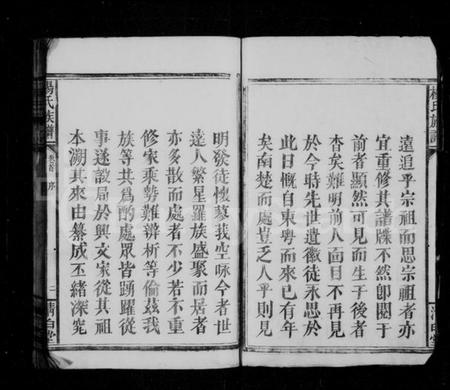 楊氏族譜
遠追乎宗祖而思宗祖者亦
宜重修其譜牒不然卽閱于
前者顯然可見而生于後者
杳矣難明前人面目不再見
於今時先世遺徽徒永思於
此日慨自東粤而來已有年
矣南楚而處豈乏人乎則見
明發徒懷墓我空咏今者世
遠人繁星羅族盛聚而居者
亦多散而處者不少若不重
修家乘勢難辯析等倫茲我
族等共爲酌處眾皆踴躍從
事遂設局於興文家從其祖
本溯其來由纂成丕緒深究
楊氏族譜
卷首 序
二
清白堂